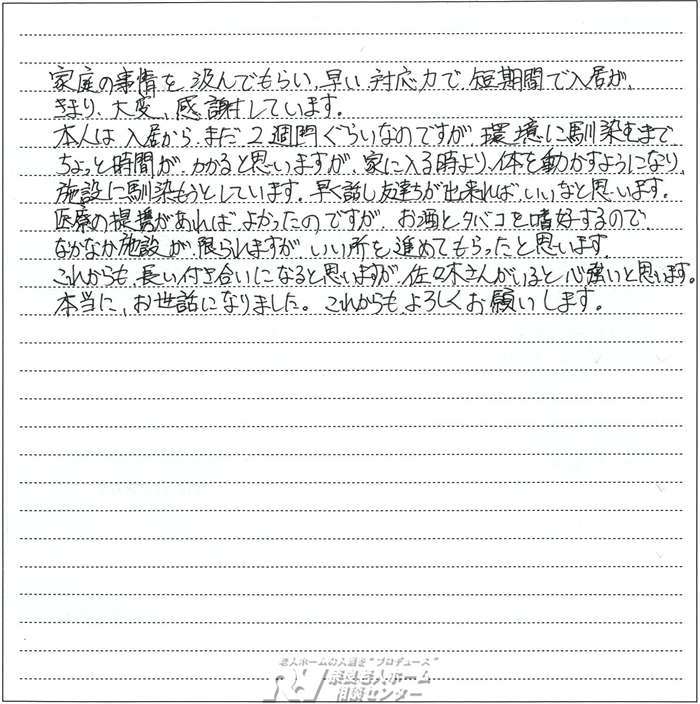 家庭の事情を汲んでもらい、早い対応力で、短期間で入居が、
きまり、大変、感謝しています。
本人は入居から、まだ2週間ぐらいなのですが、環境に馴染むまで
ちょっと時間が、かかると思いますが、家に入る時より、体を動かすようになり、
施設に馴染もうとしています。早く話し友達が出来れば、いいなと思います。
医療の提携があれば、よかったのですが、お酒とタバコを嗜好するので、
なかなか施設が、限られますが、いい所を進めてもらったと思います。
これからも、長い付き合いになると思いますが、佐々木さんがいると心強いと思います。
本当に、お世話になりました。これからも、よろしくお願いします。
老人ホームの入居を"プロデュース"
奈良老人ホーム
相談センター